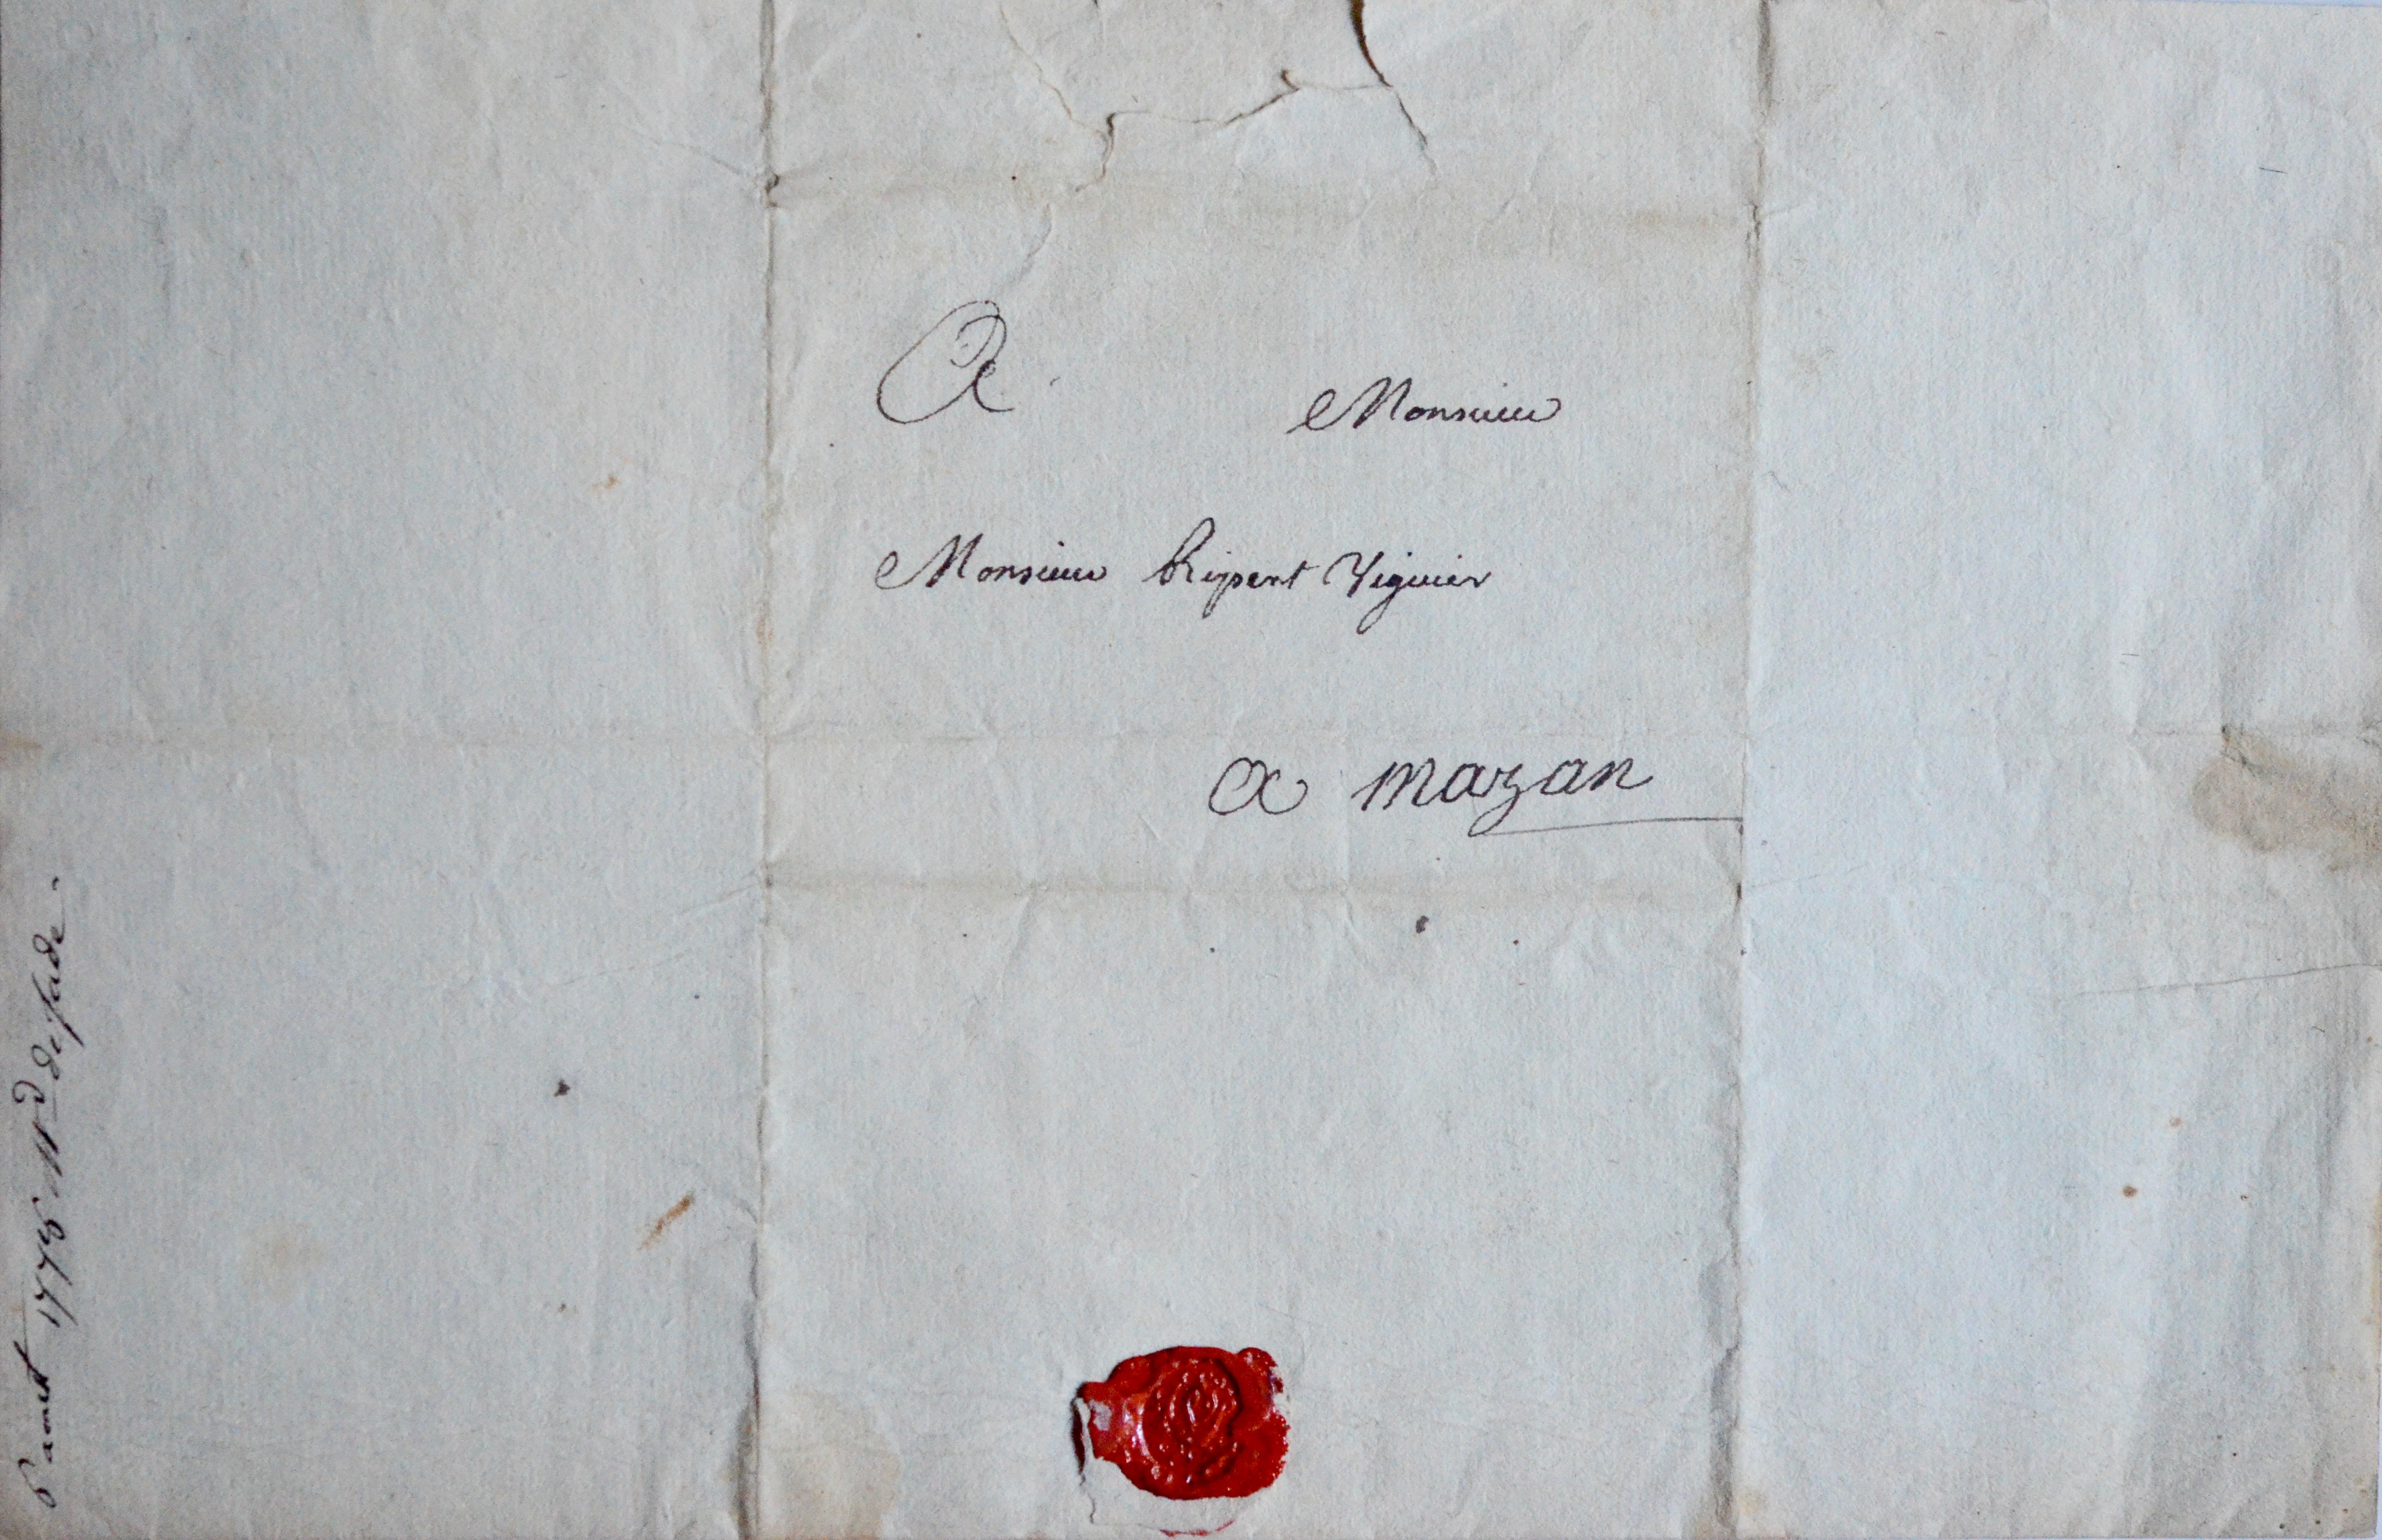 A Monsieur
Monsieur Ripert Viguier
a mazan
6 aout 1775 Md de sade